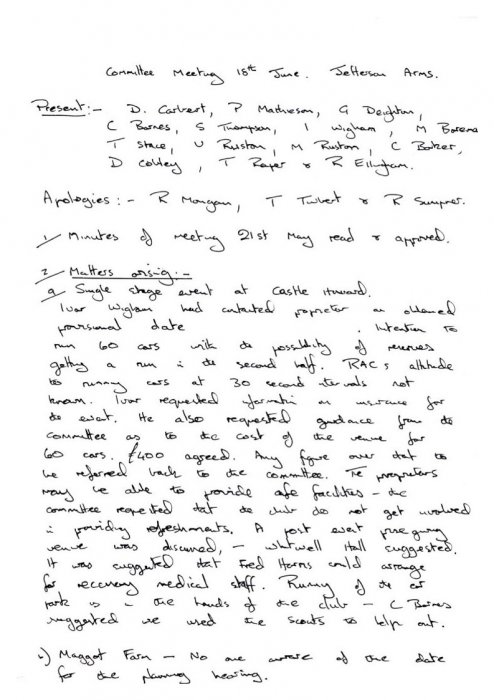 Committee Meeting 18th June. Jefferson Arms.
Present:- D. Carbert, P Mathieson, G Deighton,
C Barnes, S Thompson, I Wigham, M Borema
T Stace, V Ruston, M Ruston, C Barker,
D Cobley, T Raper & R Ellingham.
Apologies:- R Mangam, T Turbert & R Sumpner.
1/ Minutes of meeting 21st May read & approved.
2/ Matters arising:-
a/ Single stage event at Castle Howard.
Ivar Wigham had contacted proprietor an obtained
provisional date . Intention to
run 60 cars with the possibility of reserves
getting a run in the second half. RACs attitude
to running cars at 30 second intervals not
known. Ivar requested information on insurance for
the event. He also requested guidance from the
committee as to the cost of the venue for
60 cars. £400 agreed. Any figure over that to
be referred back to the committee. The proprietors
may be able to provide cafe facilities - the
committee requested that the club do not get involved
in providing refreshments. A post event prize giving
venue was discussed, - Whitwell Hall suggested.
It was suggested that Fred Harris could arrange
for recovery medical staff. Running of the car
park is in the hands of the club - C Barnes
suggested we used the scouts to help out.
b) Maggot Farm - No one aware of the date
for the planning hearing.